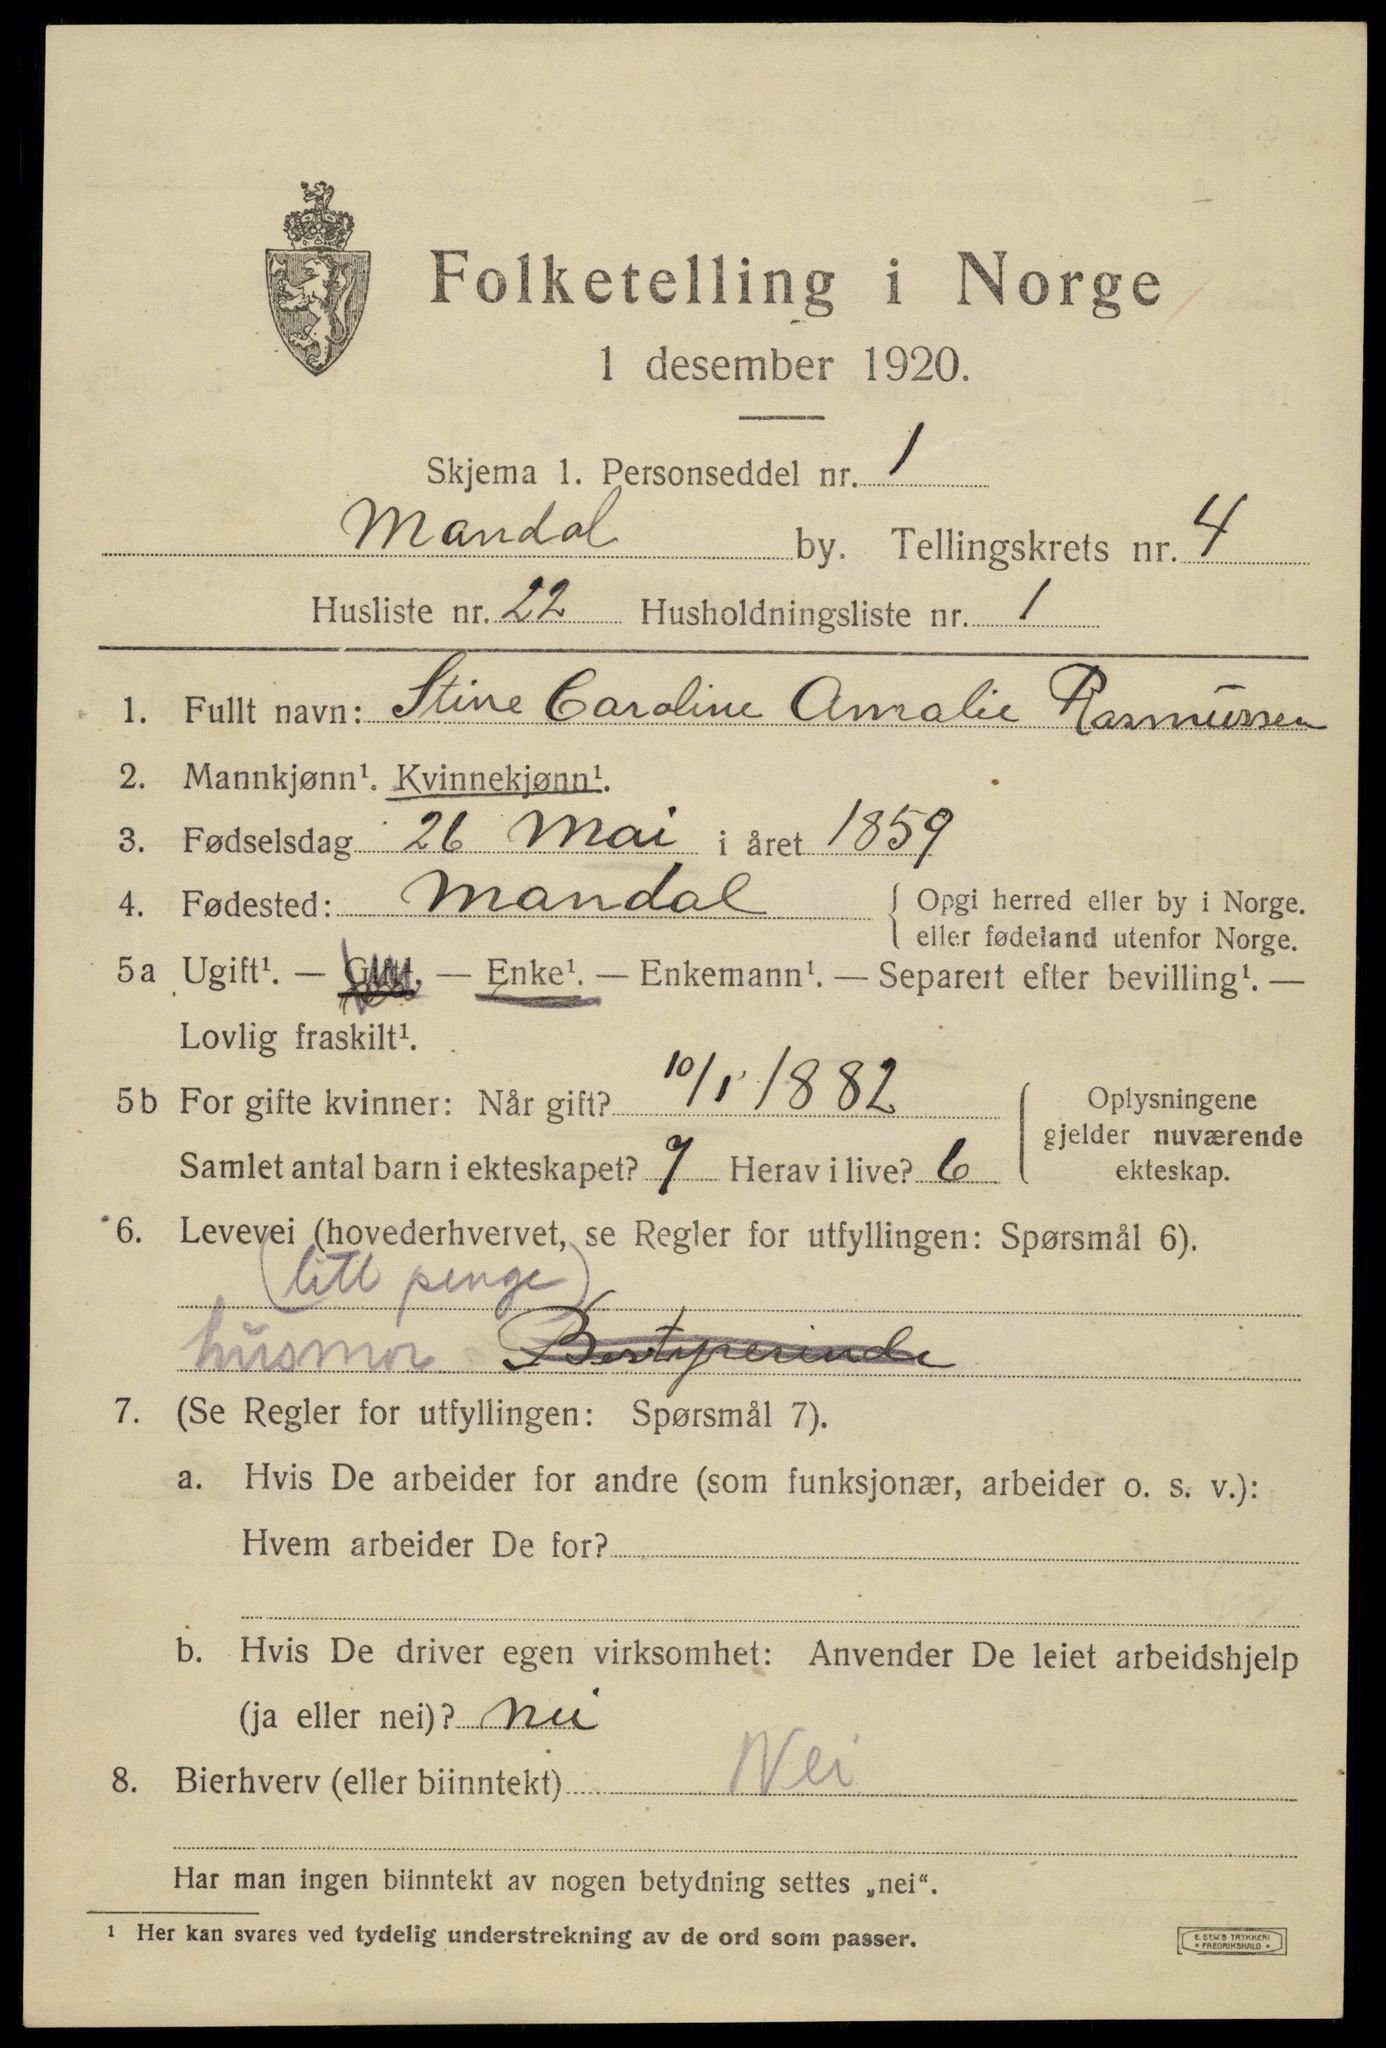 Folketelling i Norge
1 desember 1920.
Skjema 1. Personseddel nr. 1
Mandal by. Tellingskrets nr. 4
Husliste nr. 22 Husholdningsliste nr. 1
1. Fullt navn: Stine Caroline Amalie Rasmussen
2. Mannkjønn¹. Kvinnekjønn¹.
3. Fødselsdag 26 Mai i året 1859
4. Fødested: Mandal { Opgi herred eller by i Norge.
eller fødeland utenfor Norge.
5a Ugift¹. — Gift¹. — Enke¹. — Enkemann¹. — Separert efter bevilling¹. —
Lovlig fraskilt¹.
5b For gifte kvinner: Når gift? 10/1 1882
Samlet antal barn i ekteskapet? 7 Herav i live? 6
Oplysningene
gjelder nuværende
ekteskap.
6. Levevei (hovederhvervet, se Regler for utfyllingen: Spørsmål 6).
(litt penge)
husmor Bestyrerinde
7. (Se Regler for utfyllingen: Spørsmål 7).
a. Hvis De arbeider for andre (som funksjonær, arbeider o. s. v.):
Hvem arbeider De for?
b. Hvis De driver egen virksomhet: Anvender De leiet arbeidshjelp
(ja eller nei)? nei
8. Bierhverv (eller biinntekt) Nei
Har man ingen biinntekt av nogen betydning settes „nei“.
¹ Her kan svares ved tydelig understrekning av de ord som passer.
E. SEM'S TRYKKERI
• FREDRIKSHALD •